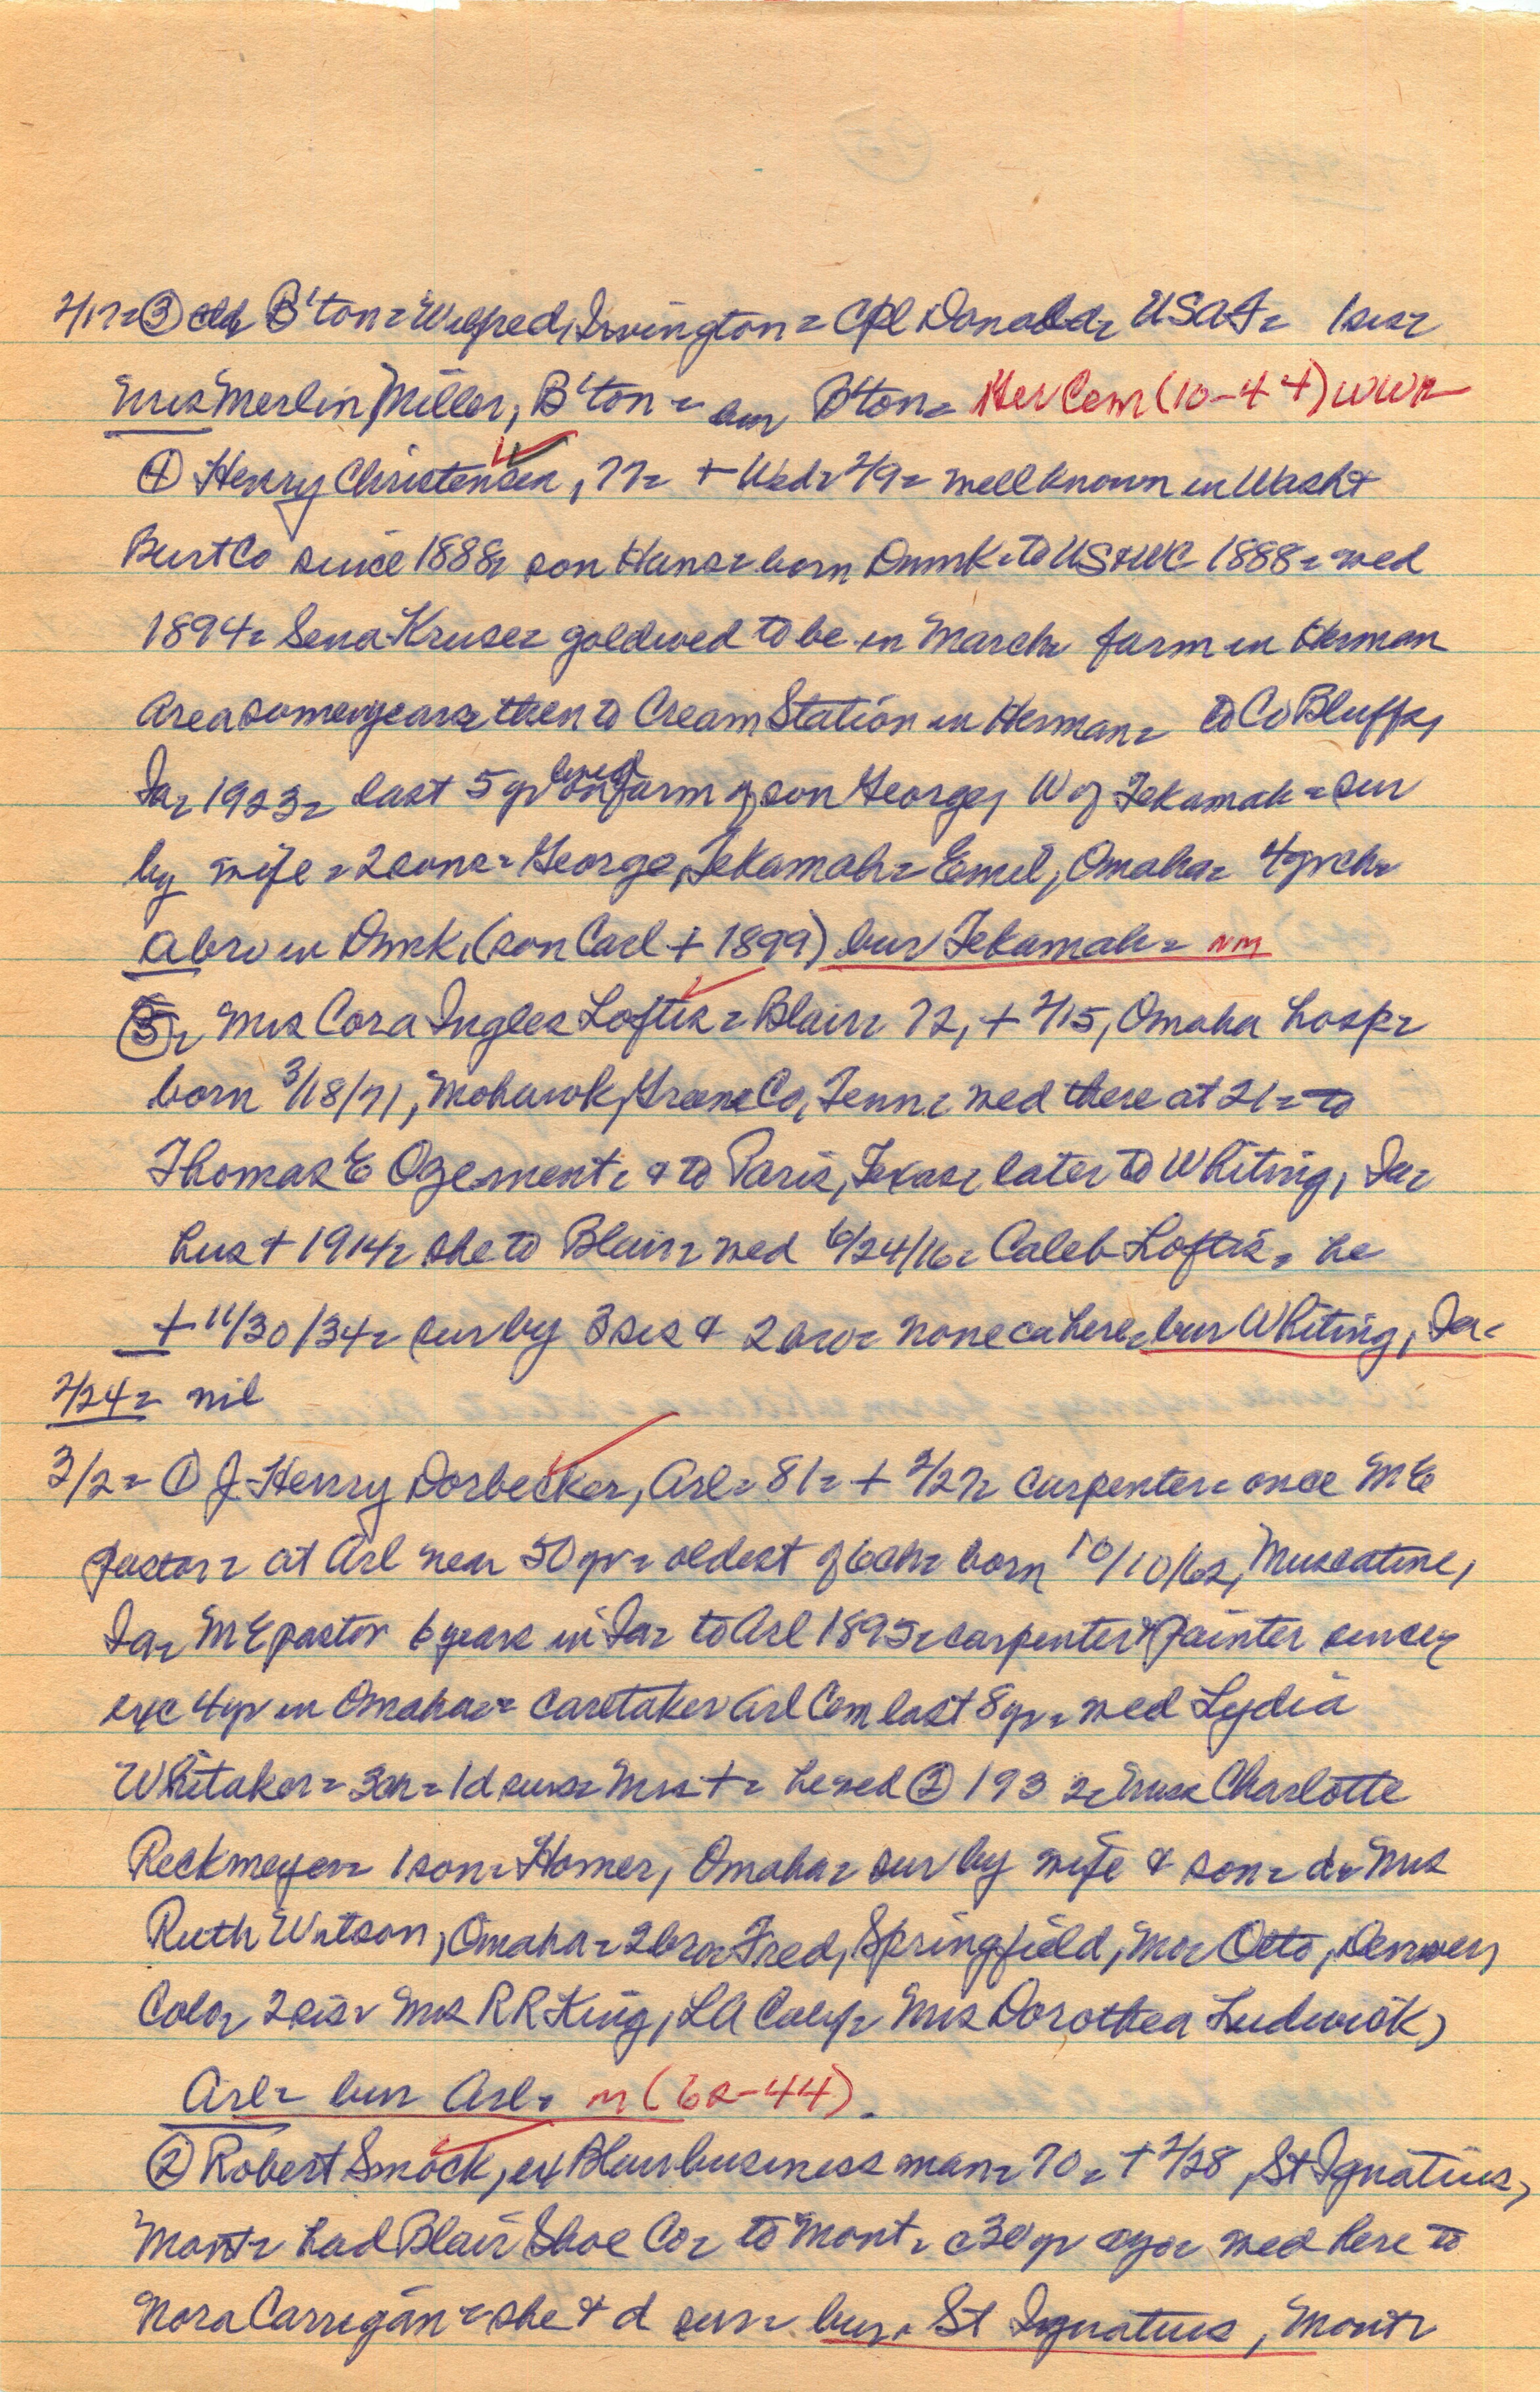 2/17= ③ cld B'ton= Wilfred, Irvington= Cpl Donald= USAF= 1 sis=
Mrs Merlin Miller, B'ton= bur B'ton= Her Cem (10-44) WWR
④ Henry Christensen, 77= + Wed= 2/9= well known in Wash +
Burt Co since 1888= son Hans= born Dnmk= to US + WC 1888= wed
1894= Sena Kruse= gold wed to be in March= farm in Herman
Area some years= then to Cream Station in Herman= to Co Bluffs,
Ia= 1923= last 5 yr lived on farm of son George, W of Tekamah= sur
by wife= 2 sons= George, Tekamah= Emil, Omaha= 4 grch=
a bro in Dnmk, (son Carl + 1899) bur Tekamah= nm
⑤= Mrs Cora Ingles Loftis= Blair= 72, + 2/15, Omaha hosp=
born 3/18/71, Mohawk, Greene Co, Tenn= wed there at 21= to
Thomas E Ogement= & to Paris, Texas= later to Whiting, Ia=
hus + 1914= she to Blair= wed 6/24/16= Caleb Loftis= he
+ 11/30/34= sur by 3 sis & 2 bro= none ca here= bur Whiting, Ia=
2/24= nil
3/2= ① J Henry Dorbecker, Arl= 81= + 2/27= carpenter= once ME
pastor= at Arl near 50 yr= oldest of 6 ch= born 10/10/62, Muscatine,
Ia= ME pastor 6 years in Ia= to Arl 1895= carpenter & painter since=
exc 4 yr in Omaha= caretaker Arl Cem last 8 yr= wed Lydia
Whitaker= 3 ch= 1 d surv= Mrs += he wed ② 1932= Mrs Charlotte
Reckmeyer= 1 son= Homer, Omaha= sur by wife & son= d= Mrs
Ruth Watson, Omaha= 2 bro= Fred, Springfield, Mo= Otto, Denver,
Colo= 2 sis= Mrs R R King, LA Calif= Mrs Dorothea Ludwick,
Arl= bur Arl= m (62-44).
② Robert Smock, ex Blair business man= 70= + 2/28, St Ignatius,
Mont= had Blair Shoe Co= to Mont= c 30 yr ago= wed here to
Nora Carrigan= she & d surv= bur= St Ignatius, Mont=